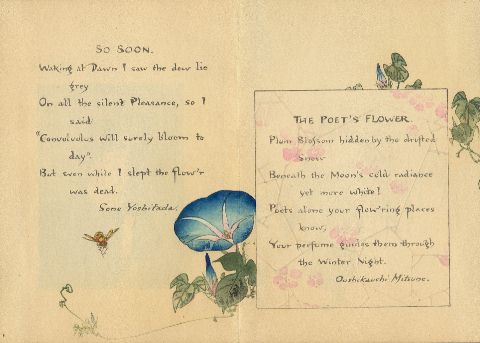 SO SOON.
Waking at Dawn I saw the dew lie
grey
On all the silent Pleasance, so I
said
"Convolvolus will surely bloom to
day".
But even while I slept the flow'r
was dead.
Sone Yoshitada.
THE POET'S FLOWER
Plum Blossom hidden by the drifted
snow
Beneath the Moon's cold radiance
yet more white!
Poets alone your flow'ring places
know,
Your perfume guides them through
the Winter Night.
Oushikauchi Mitsune.